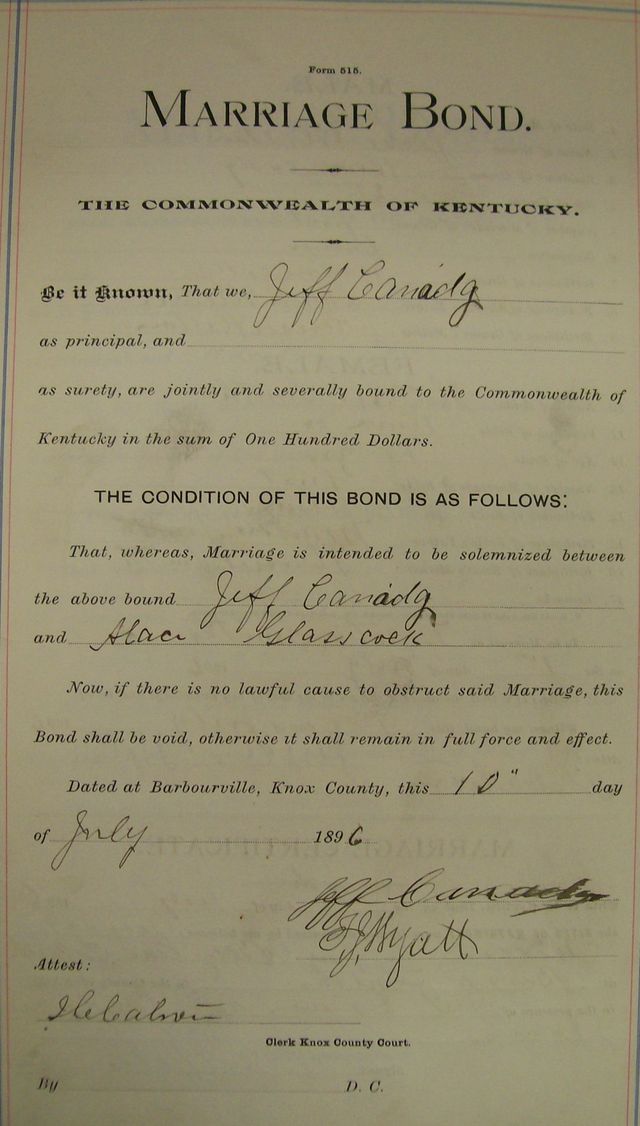 Form 515.
MARRIAGE BOND.
THE COMMONWEALTH OF KENTUCKY.
Be it Known, That we, Jeff Canadg
as principal, and
as surety, are jointly and severally bound to the Commonwealth of
Kentucky in the sum of One Hundred Dollars.
THE CONDITION OF THIS BOND IS AS FOLLOWS:
That, whereas, Marriage is intended to be solemnized between
the above bound Jeff Canadg
and Glasscock
Now, if there is no lawful cause to obstruct said Marriage, this
Bond shall be void, otherwise it shall remain in full force and effect.
Dated at Barbourville, Knox County, this 10" day
of July 1896
Jeff Canady
Wyatt
Attest:
Clerk Knox County Court.
By D. C.